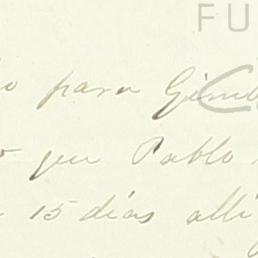 FU
o para
o que Pablo
15 días allí